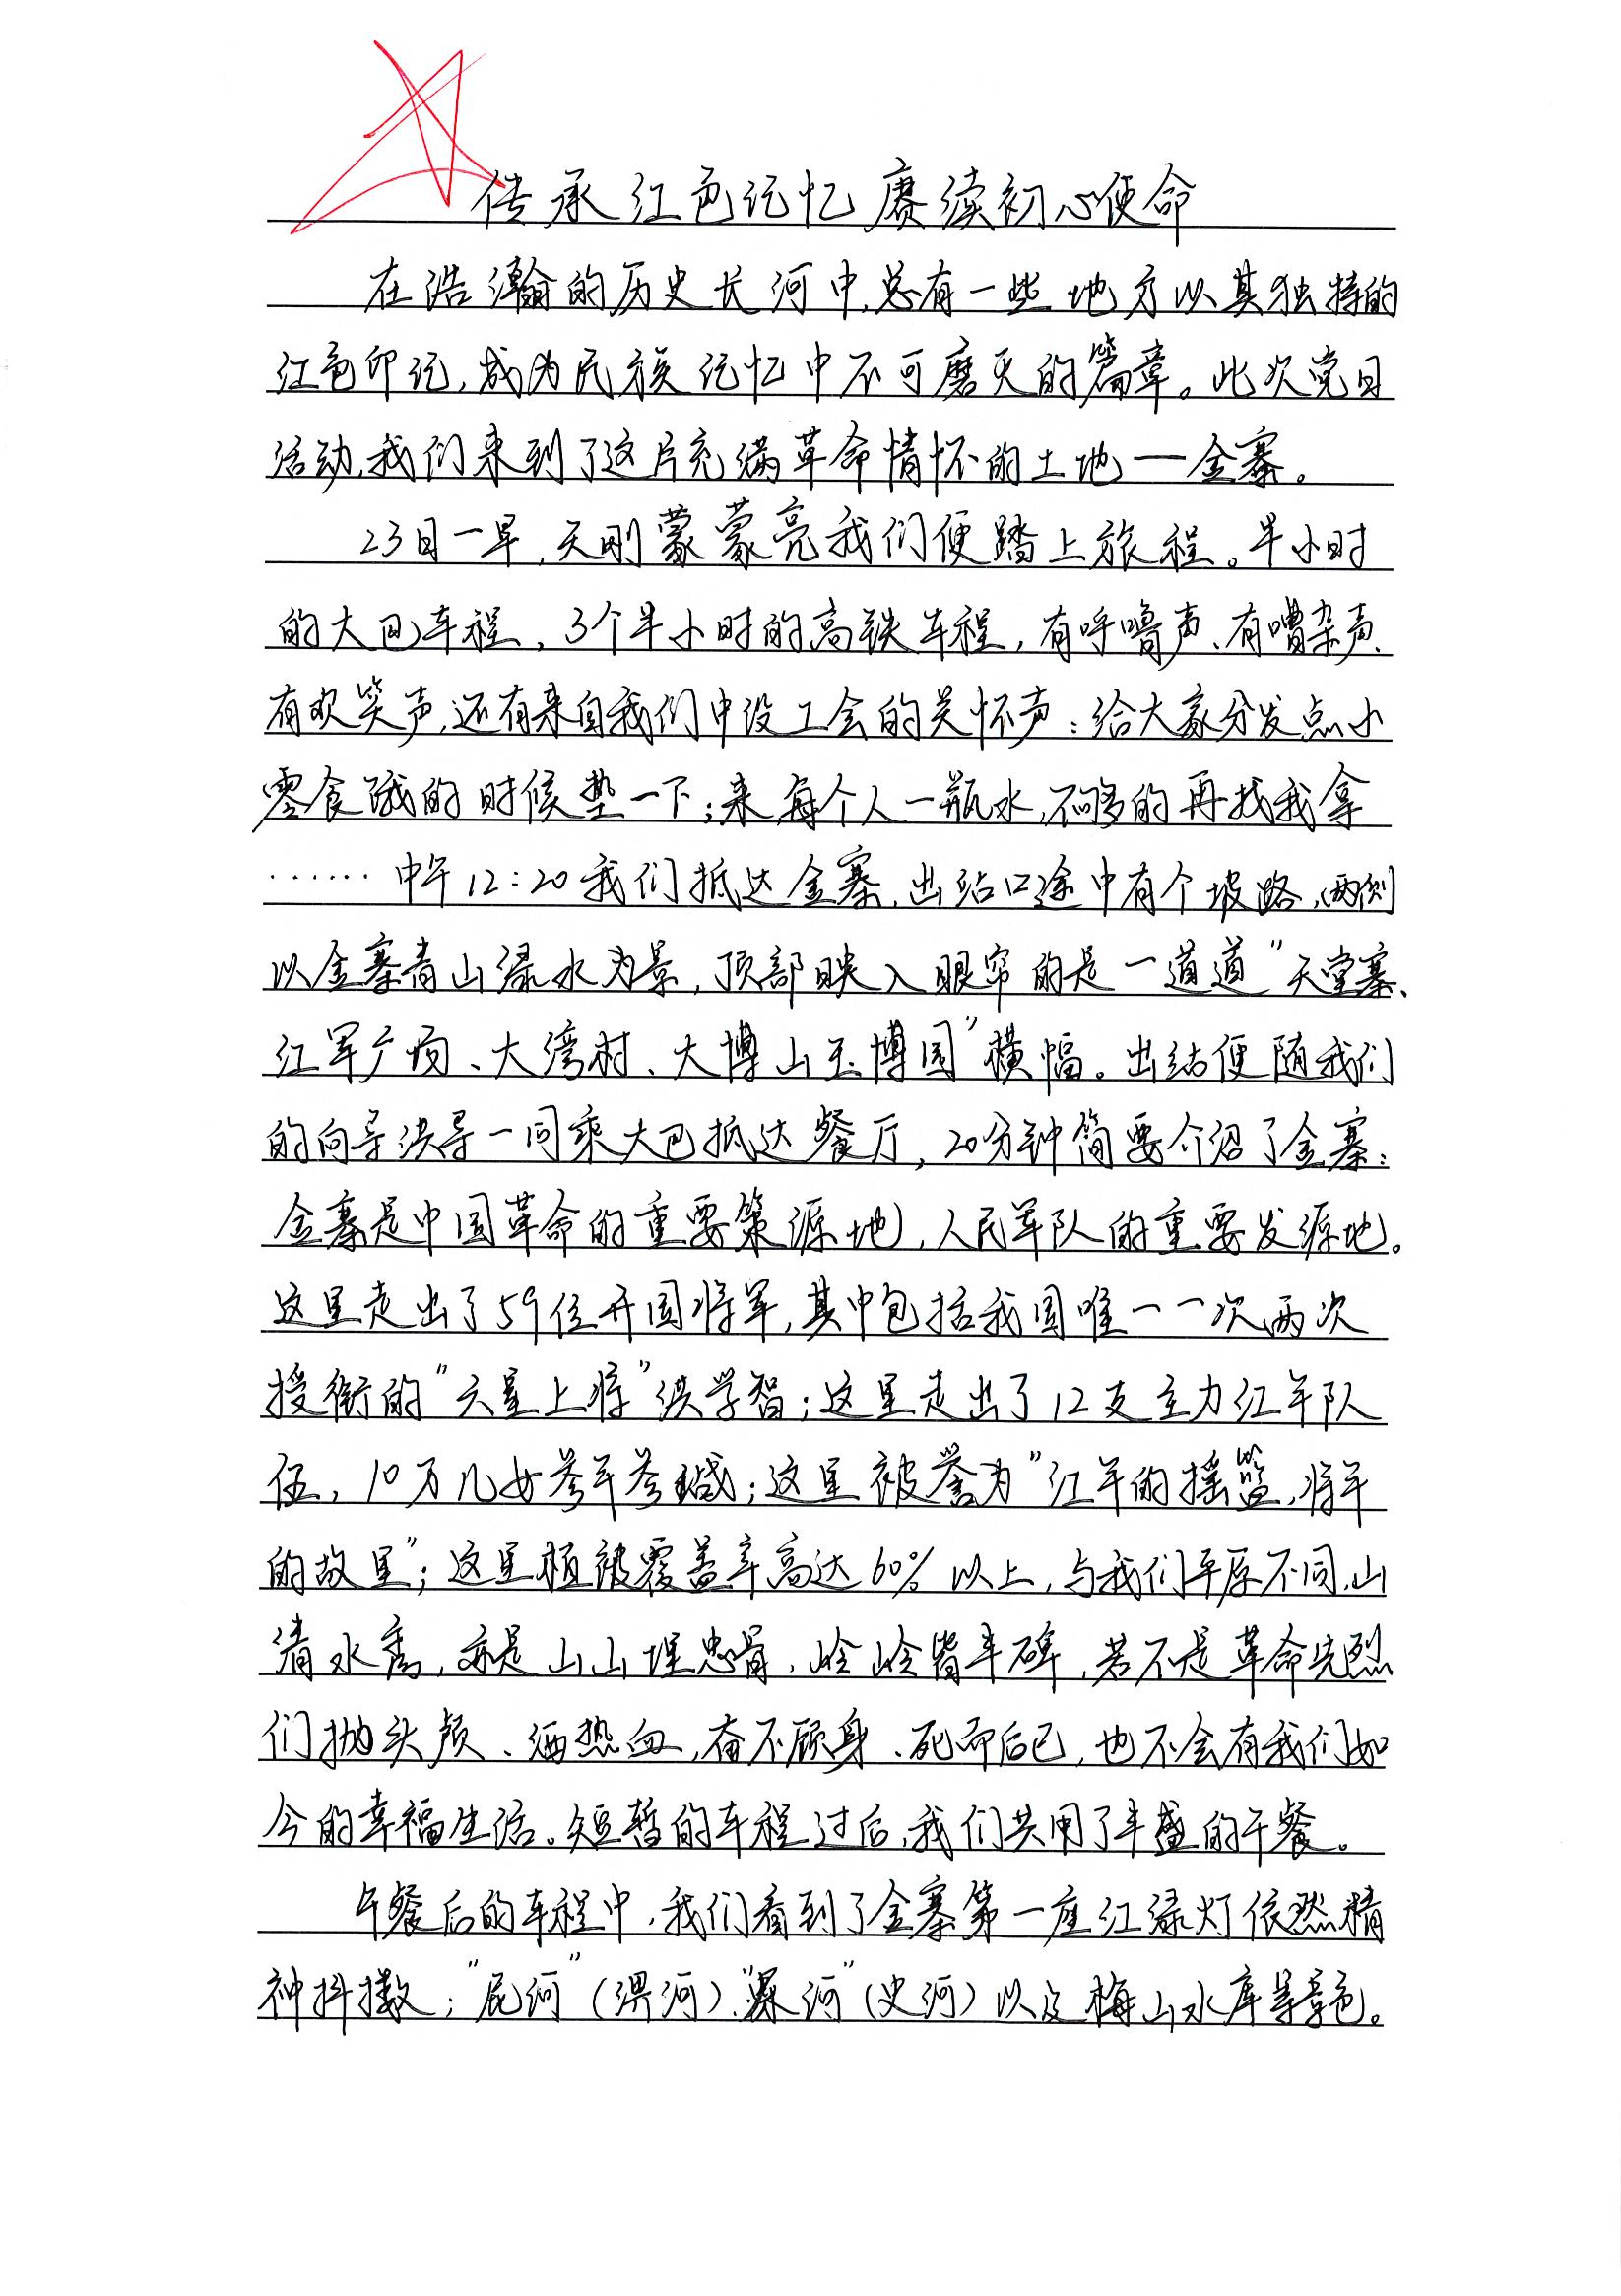 传承红色记忆 赓续初心使命
在浩瀚的历史长河中,总有一些地方以其独特的
红色印记,成为民族记忆中不可磨灭的篇章。此次党日
活动,我们来到了这片充满革命情怀的土地一金寨。
23日一早,天刚蒙蒙亮我们便踏上旅程。半小时
的大巴车程、3个半小时的高铁车程,有呼噜声、有嘈杂声、
有欢笑声,还有来自我们中设工会的关怀声:给大家分发点小
零食饿的时候垫一下;来,每个人一瓶水,不够的再找我拿
……中午12:20我们抵达金寨,出站口途中有个坡路,两侧
以金寨青山绿水为景,顶部映入眼帘的是一道道"天堂寨、
红军广场、大湾村、大博山玉博园"横幅。出站便随我们
的向导洪导一同乘大巴抵达餐厅,20分钟简要介绍了金寨:
金寨是中国革命的重要策源地,人民军队的重要发源地。
这里走出了59位开国将军,其中包括我国唯一一次两次
授衔的"六星上将"洪学智;这里走出了12支主力红军队
伍,10万儿女参军参战;这里被誉为"红军的摇篮,将军
的故里";这里植被覆盖率高达60%以上,与我们平原不同,山
清水秀,亦是山山埋忠骨,岭岭皆丰碑,若不是革命先烈
们抛头颅、洒热血,奋不顾身、死而后已,也不会有我们如
今的幸福生活。短暂的车程过后,我们共用了丰盛的午餐。
午餐后的车程中,我们看到了金寨第一座红绿灯依然精
神抖擞;"屁河"(淠河)、"屎河"(史河)以及梅山水库等景色。